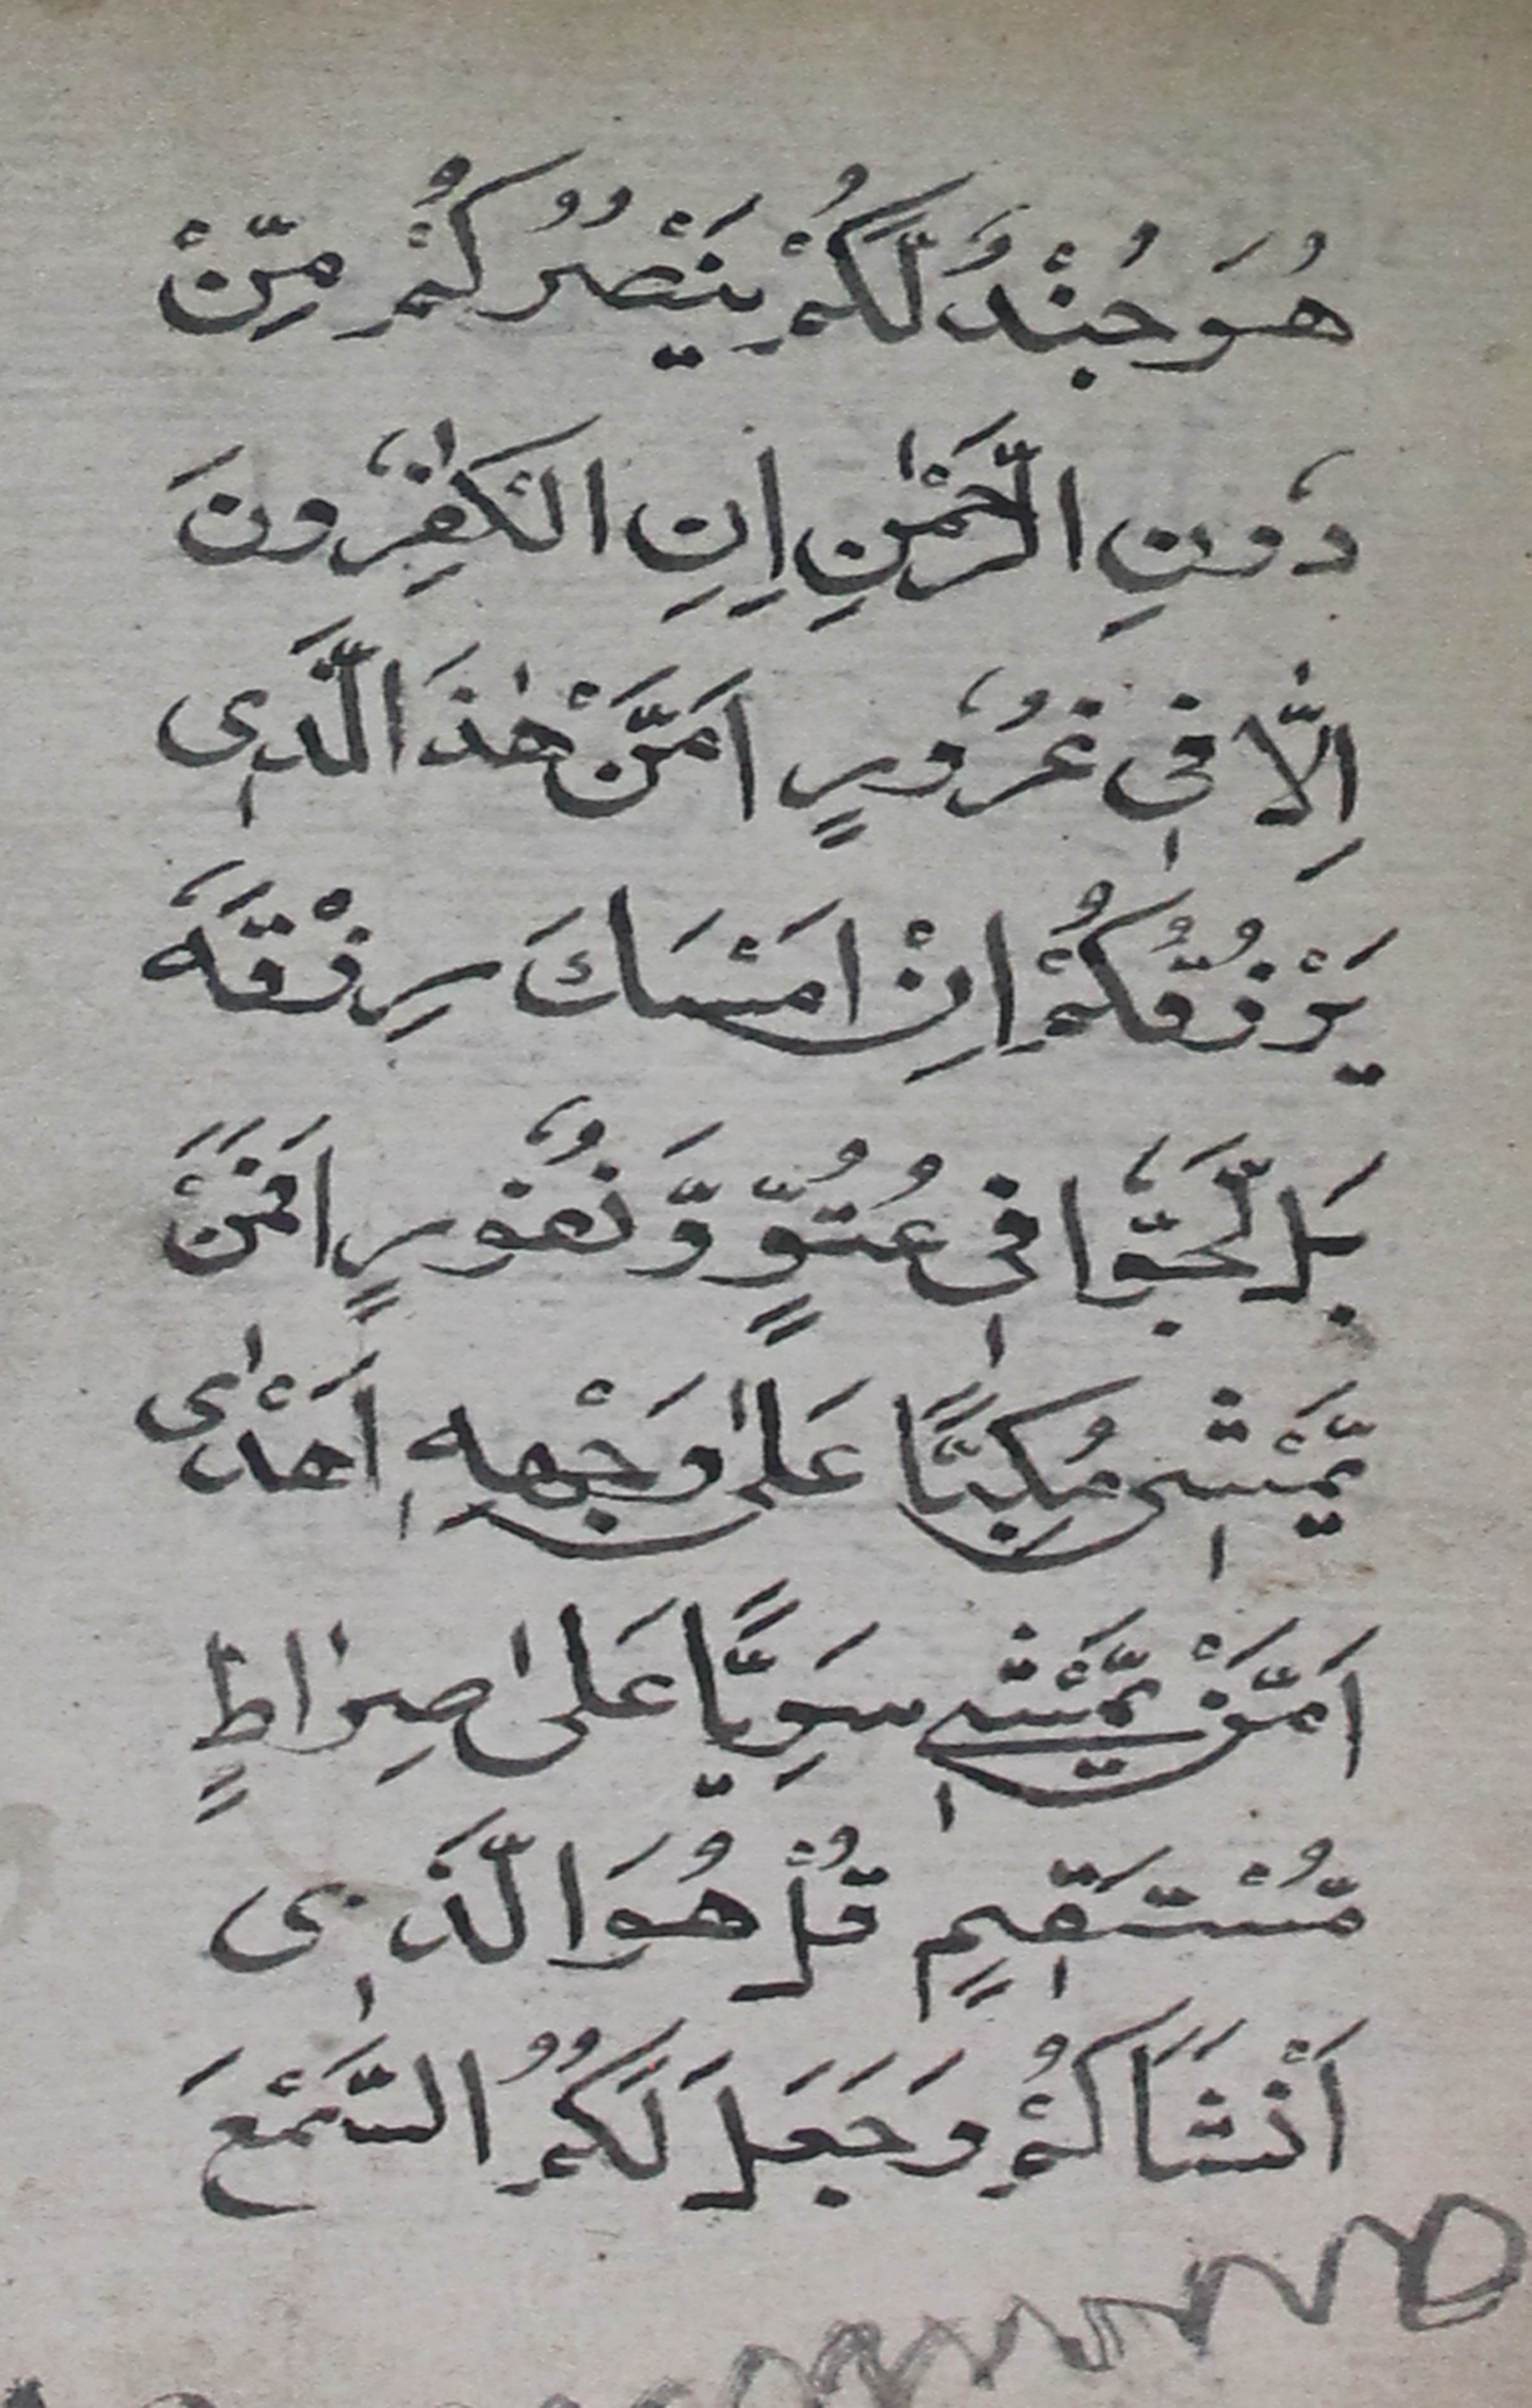 هُوَ جُنْدٌ لَّكُمْ يَنْصُرُكُمْ مِّنْ
دُونِ الرَّحْمٰنِ اِنِ الْكٰفِرُونَ
اِلَّا فِى غُرُورٍ اَمَّنْ هٰذَا الَّذِى
يَرْزُقُكُمْ اِنْ اَمْسَكَ رِزْقَهُ
بَل لَّجُّوا فِى عُتُوٍّ وَّنُفُورٍ اَفَمَنْ
يَّمْشِى مُكِبًّا عَلٰى وَجْهِهِ اَهْدٰى
اَمَّنْ يَّمْشِى سَوِيًّا عَلٰى صِرَاطٍ
مُّسْتَقِيمٍ قُلْ هُوَ الَّذِى
اَنْشَاَكُمْ وَجَعَلَ لَكُمُ السَّمْعَ